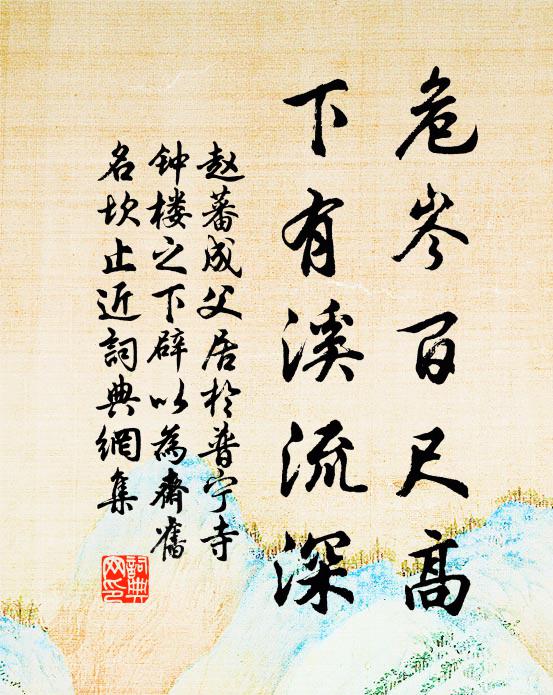 危岑百尺高
下有溪流深
赵蕃成父居於普宁寺
钟楼之下辟以為齋舊
名坎止近詞典網集
詞典
网印